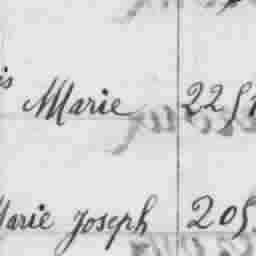 is Marie 2251
Marie Joseph 205